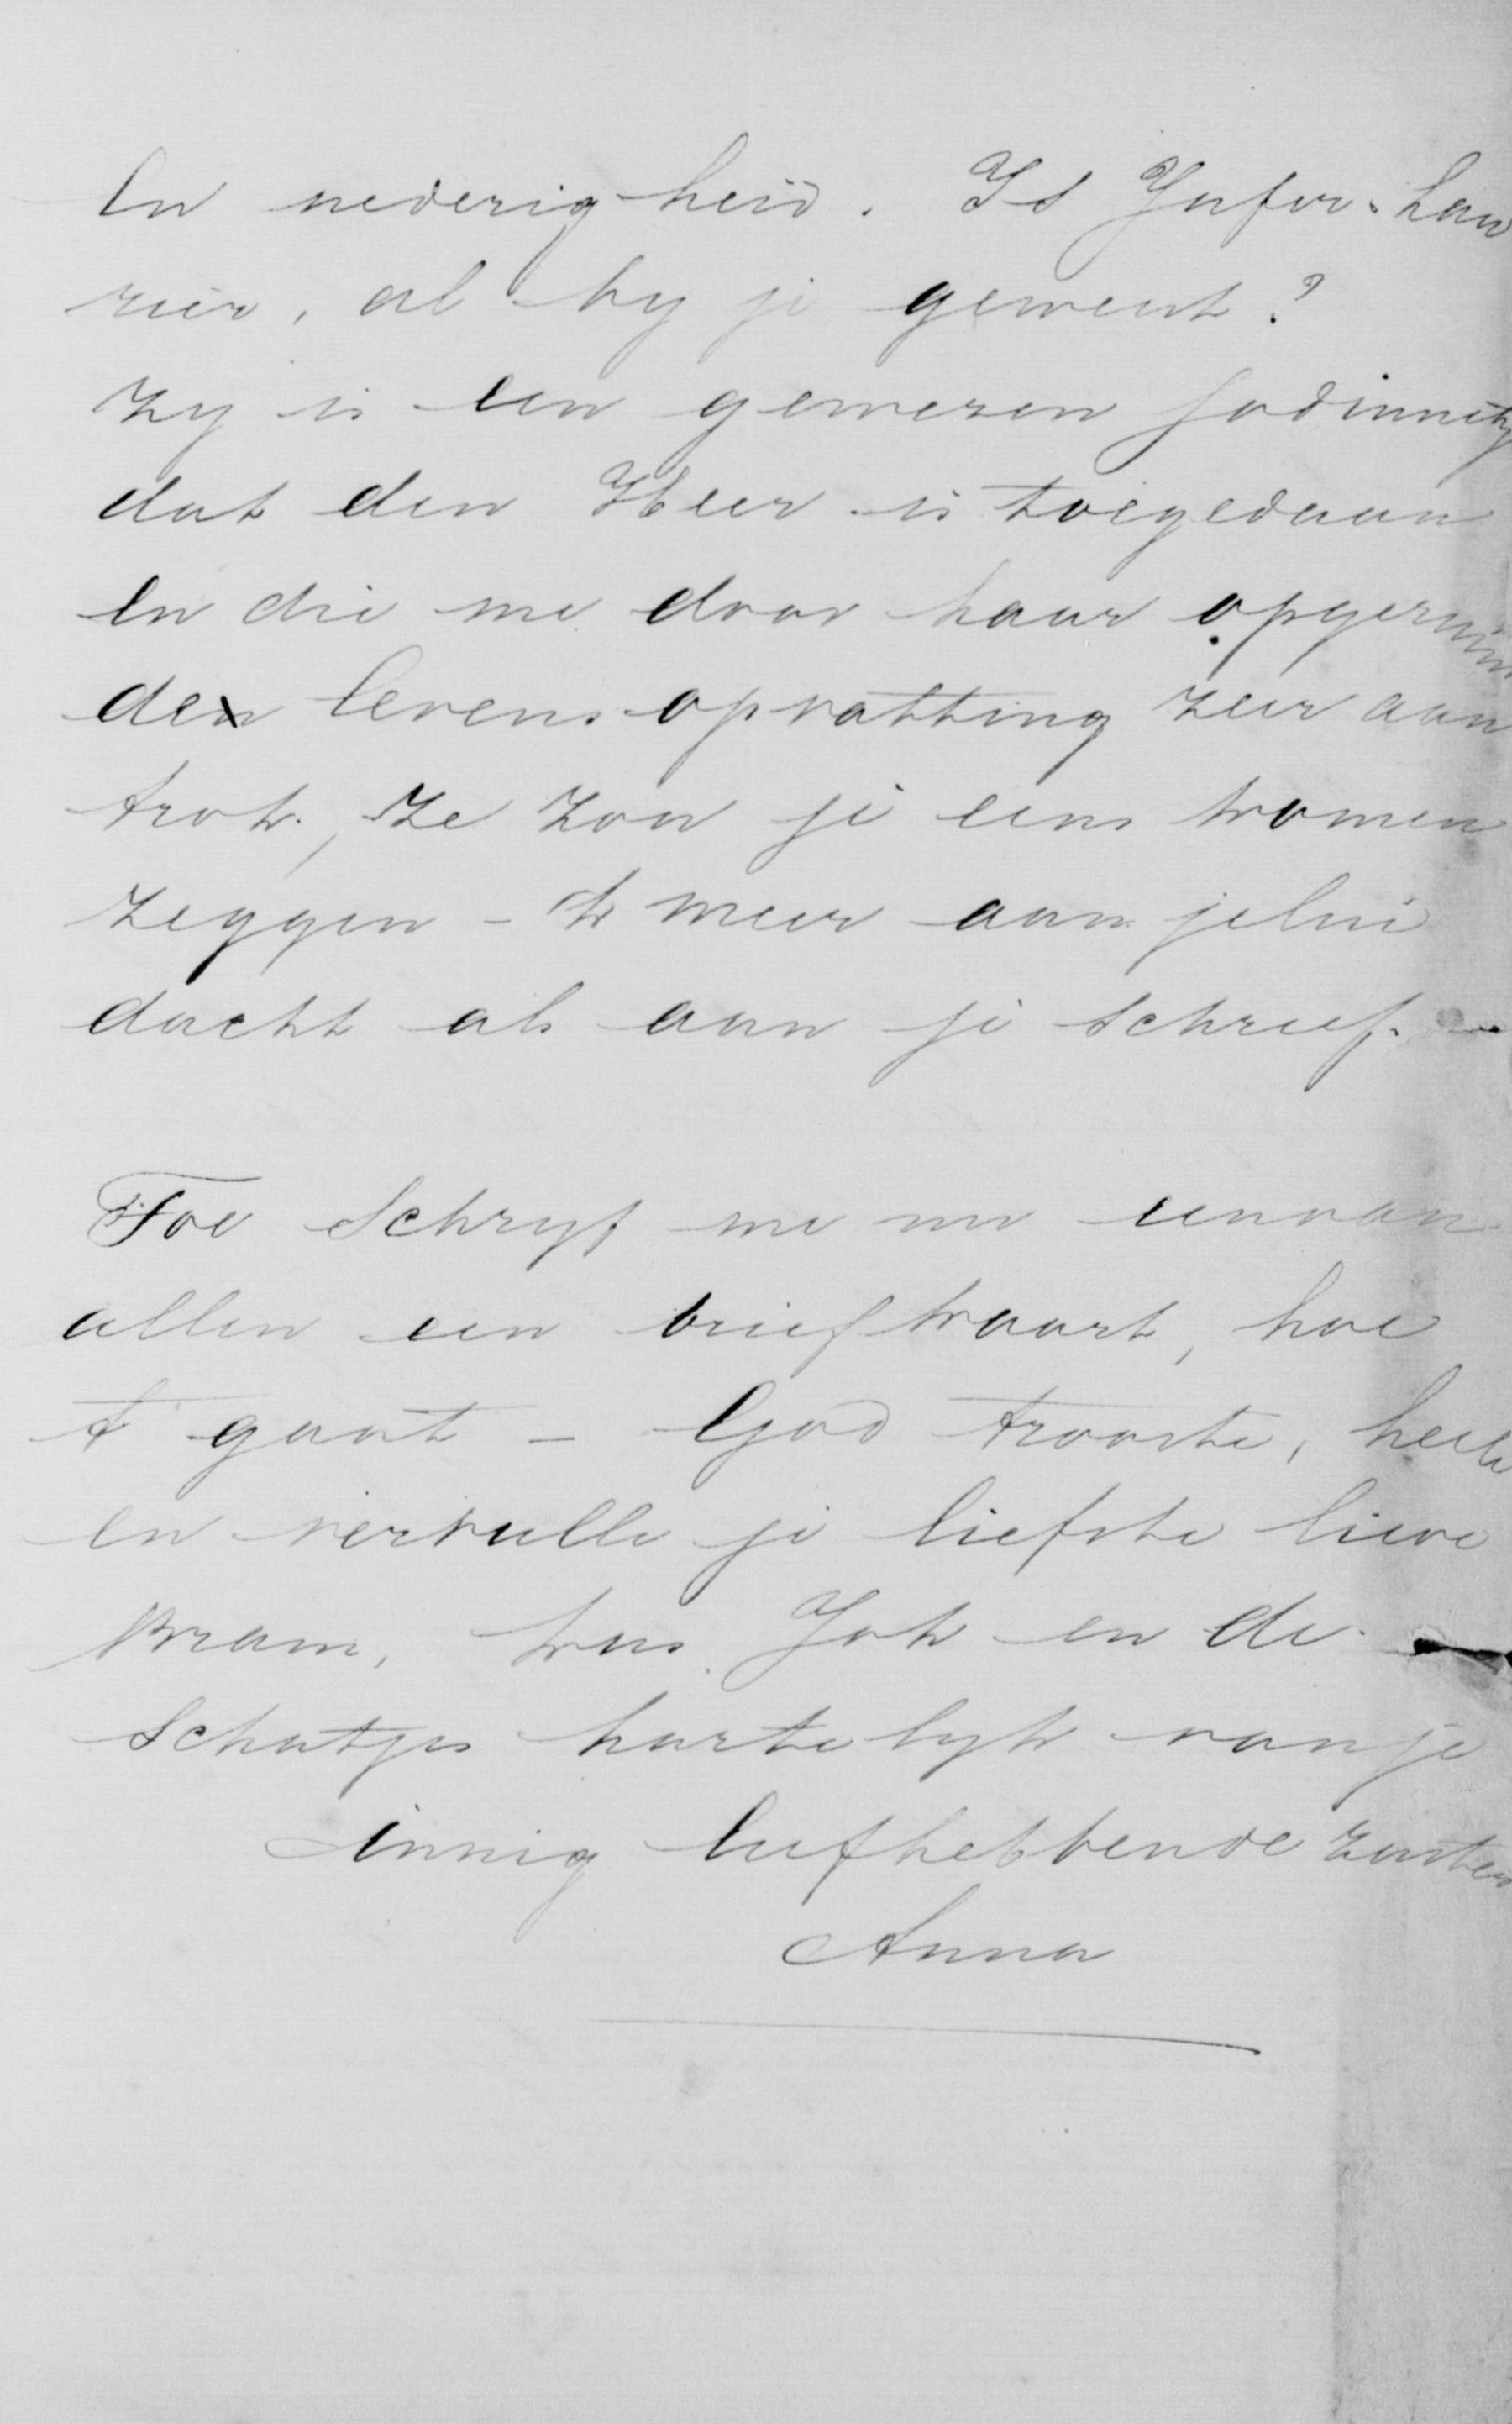 en nederigheid. Is Jufvr. Lau
rier, al by je geweest?
Zy is een gewezen Jodinnetje
dat den Heer is toegedaan
en die me door haar opgeruim
den levensopvatting zeer aan
trok, ze zou je eens komen
zeggen - ik meer aan jelui
dacht als aan je schreef. -
Toe schryf me nu een van
allen een briefkaart, hoe
't gaat - God trooste, heele
en vervulle je liefste lieve
Bram, kus Joh en de
schatjes hartelyk van je
innig liefhebbende zuster
Anna